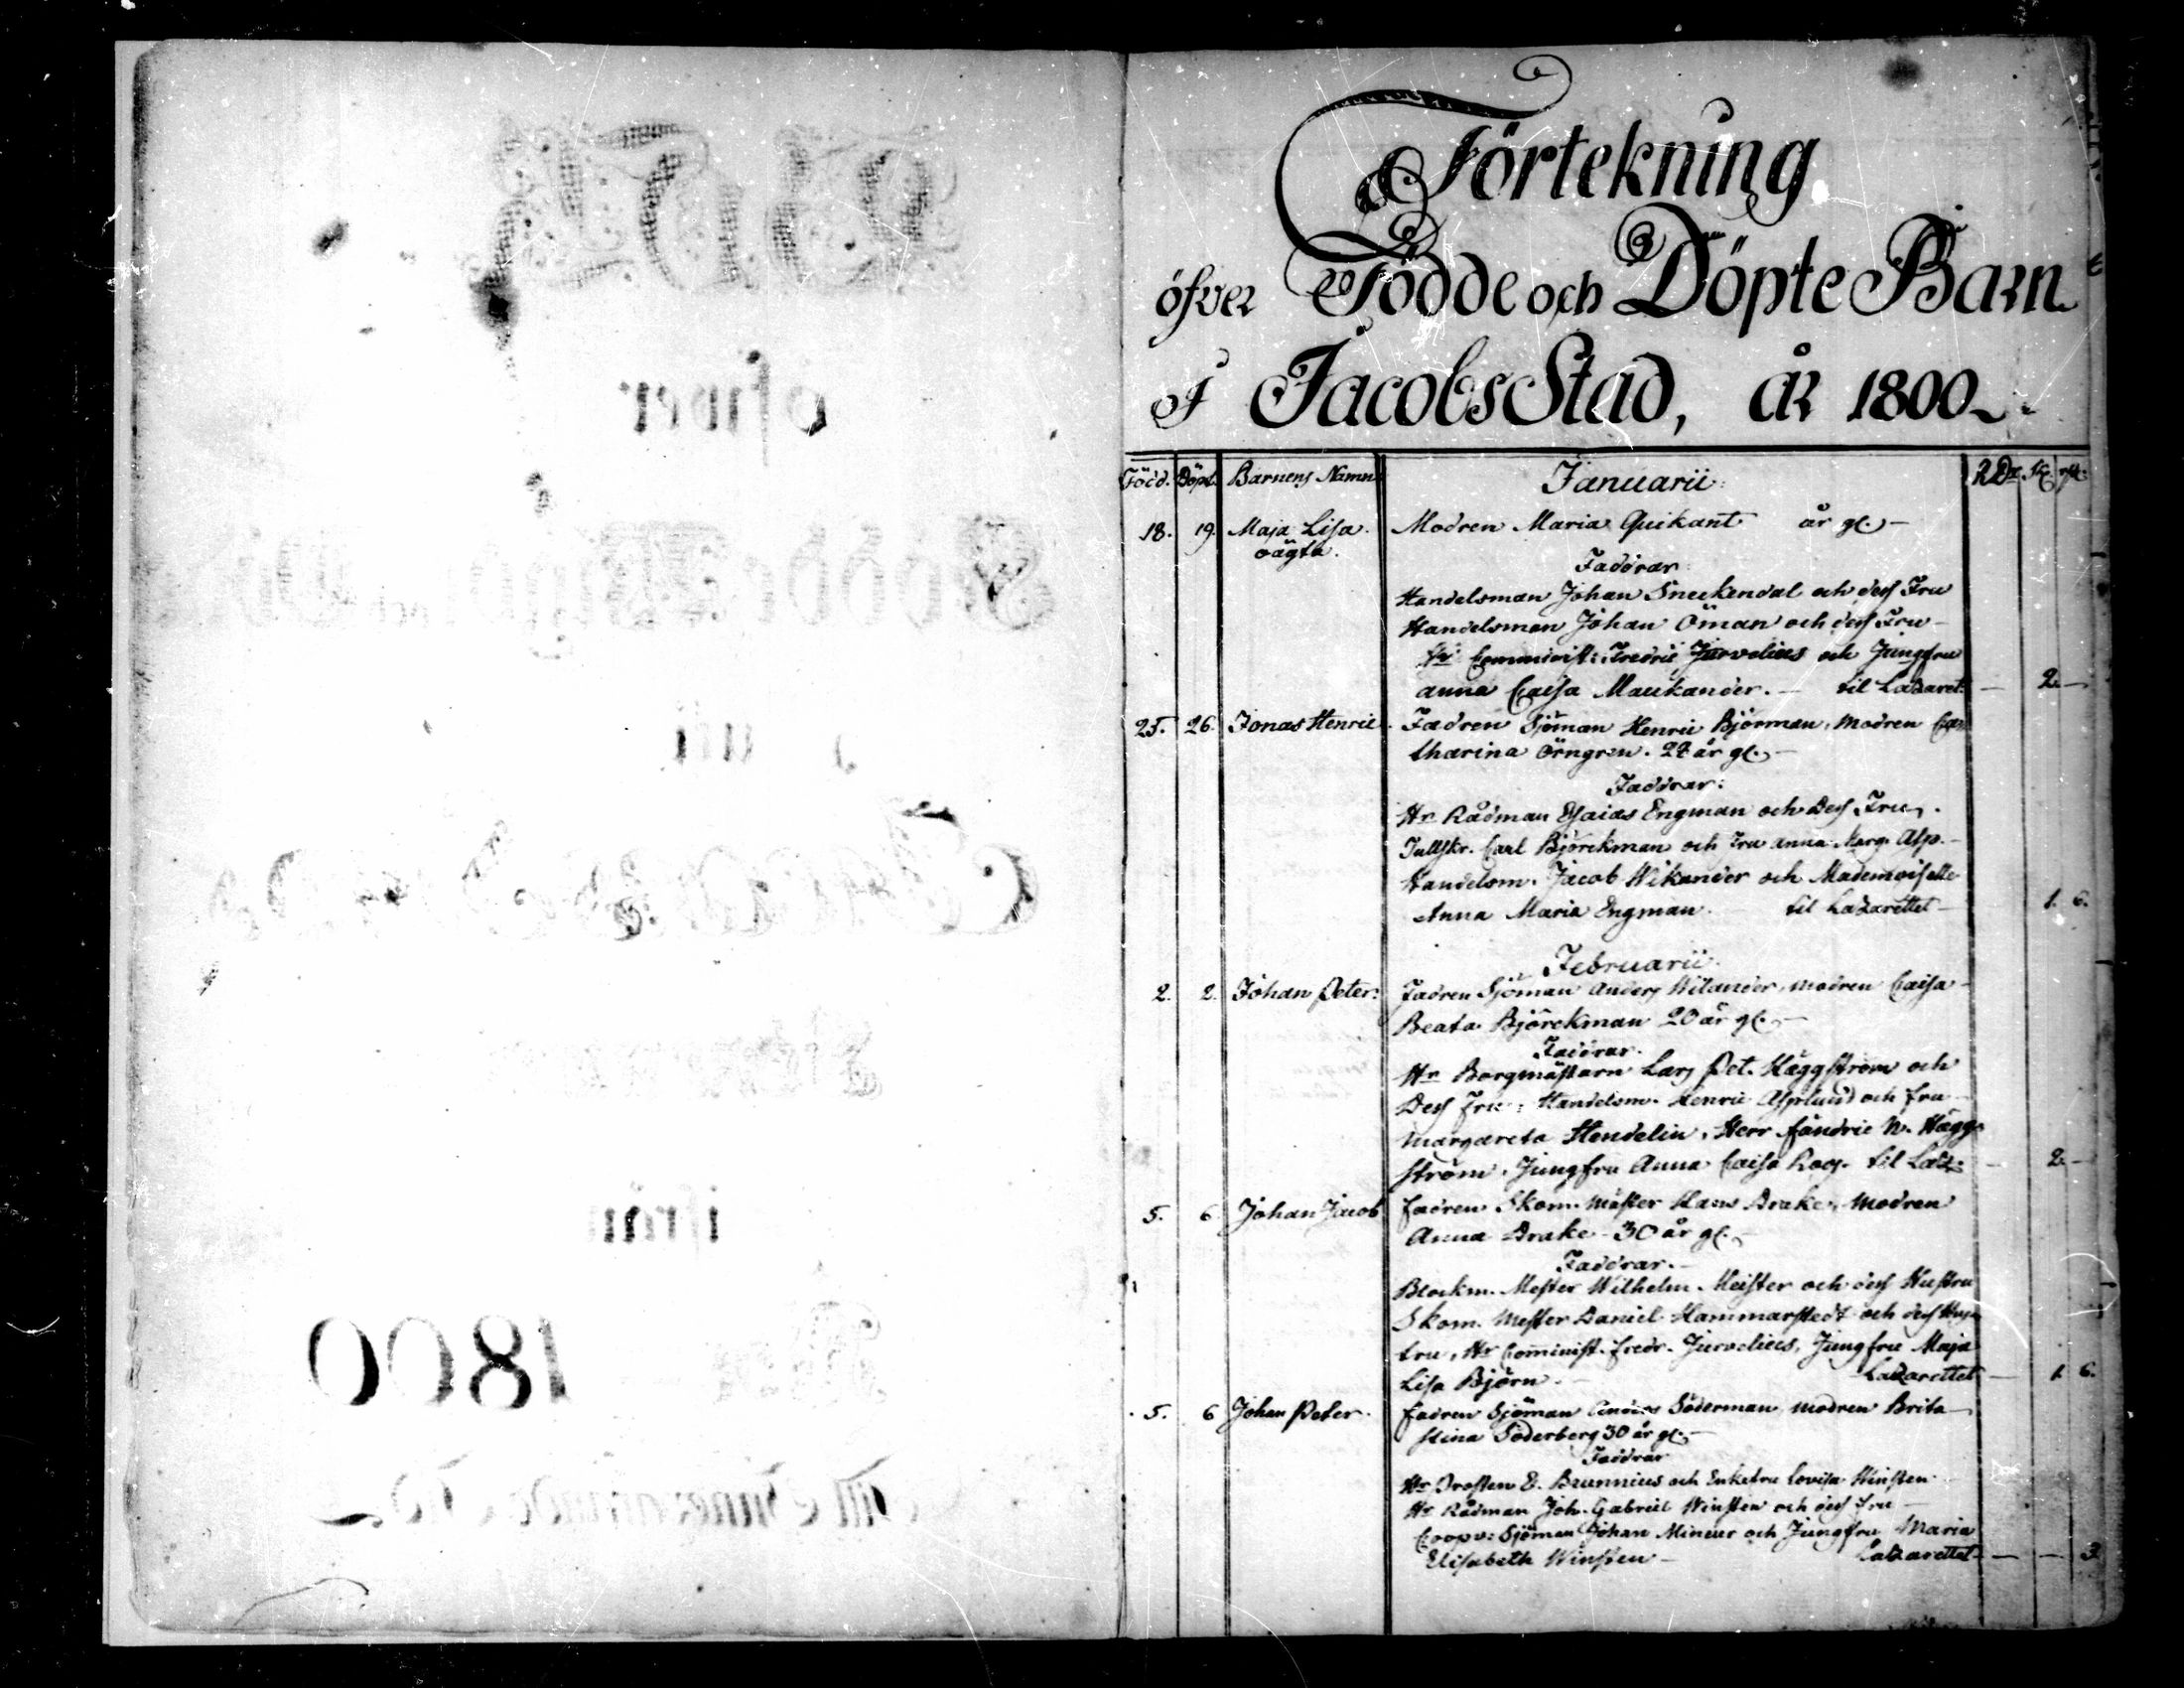 Förtekning
öfver Födde och Döpte Barn
I Jacobs Stad, åR 1800
Född. Döpt. Barnens Namn Januarii: RDr. sk. rst.
18. 19. Maja Lisa. Modren Maria Quikant år gl.
oägta.
Faddrar:
Handelsman Johan Sneckendal och dess Fru
Handelsman Johan Öman och dess Fru
Hr Comminist: Fredric Jurvelius och Jungfru
anna Caisa Maukander. til Lazaret. 2.
25. 26. Jonas Henric. Fadren Sjöman Henric Björman, Modren Ca-
tharina Örngren. 24 år gl.
Faddrar:
Hr Rådman Esaias Engman och Dess Fru.
Tullskr. Carl Björckman och Fru Anna Marg. Alp.
Handelsm. Jacob Wikander och Mademoiselle
Anna Maria Engman. til Lazarettet 1. 6.
Februarii.
2. 2. Johan Peter. Fadren Sjöman Anders Wilander, modren Caisa
Beata Björckman 20 år gl.
Faddrar.
Hr Borgmästarn Lars Pet. Häggström och
Dess Fru: Handelsm. Henric Asplund och fru
margareta Hendelin, Herr N. Hägg-
ström, Jungfru Anna Caisa Roos. til Laz: 2.
5. 6. Johan Jacob fadren Skom. mäster Hans Brake, Modren
Anna Brake 30 år gl.
Faddrar.
Blockm. Mester Wilhelm Meister och dess Hustru
Skom. Mester Daniel Hammarstedt och dess Hus-
tru, Hr Cominist. fredr. Jurvelius, Jungfru Maja
Lisa Björn. Lazarettet 1. 6.
5. 6 Johan Peter. fadren Sjöman Anders Söderman modren Brita
Stina Söderberg 30 år gl.
Faddrar
Hr Prosten E. Brunnius och Enkefru Lovisa Winsten
Hr Rådman Joh. Gabriel Winsten och dess fru
Coopv: Sjöman Johan Mineur och Jungfru Maria
Elisabeth Winsten Lazarettet 3.